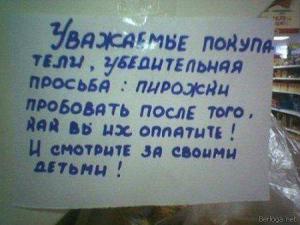 УВАЖАЕМЫЕ ПОКУПА
ТЕЛИ, УБЕДИТЕЛЬНАЯ
ПРОСЬБА: ПИРОЖКИ
ПРОБОВАТЬ ПОСЛЕ ТОГО,
КАК ВЫ ИХ ОПЛАТИТЕ!
И СМОТРИТЕ ЗА СВОИМИ
ДЕТЬМИ!
Berloga.net